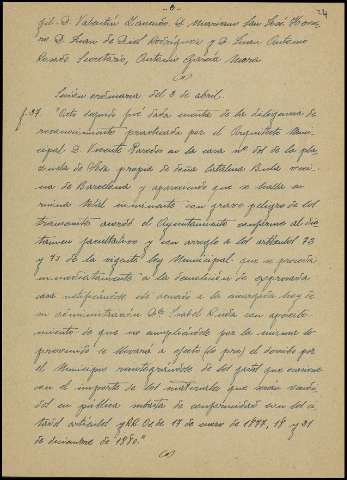 -6-
24
gil. D. Valentín Vaneñes D. Mariano San José Hono-
rio D. Juan de Dios Rodríguez y D. Juan Antonio
Rosado Secretario, Antonio García Mora
Sesión ordinaria del 3 de abril.
f. 37. "Acto seguido fué dada cuenta de la diligencia de
reconocimiento practicada por el Arquitecto Muni-
cipal D. Vicente Paredes en la casa nº dos de la pla-
zuela de Isla propia de doña Catalina Buda veci-
na de Barcelona y apareciendo que se halla en
ruina total inminente con grave peligro de los
transeuntes acordó el Ayuntamiento conforme al dic-
tamen facultativo y con arreglo a los artículos 72
y 73 de la vigente ley Municipal que se proceda
inmediatamente a la demolición de expresada
casa notificándose este acuerdo a la encargada hoy de
su administración Dª Isabel Rueda con apercibi-
miento de que no cumpliéndose por la misma lo
prevenido se llevará a efecto (lo pre) el derribo por
el Municipio reintegrándose de los gastos que ocasione
con el importe de los materiales que serán vendi-
dos en pública subasta de conformidad con los ci-
tados artículos y RR. OO. de 17 de enero de 1877, 18 y 31
de diciembre de 1880."